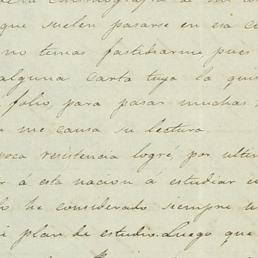 que suelen pasarse en esa c
no temas fastidiarme pues
alguna carta tuya la quis
folio, para pasar muchas
me causa su lectura.
poca resistencia logré, por ultim
á esta nacion á estudiar
he considerado siempre u
plan de estudio. Luego que